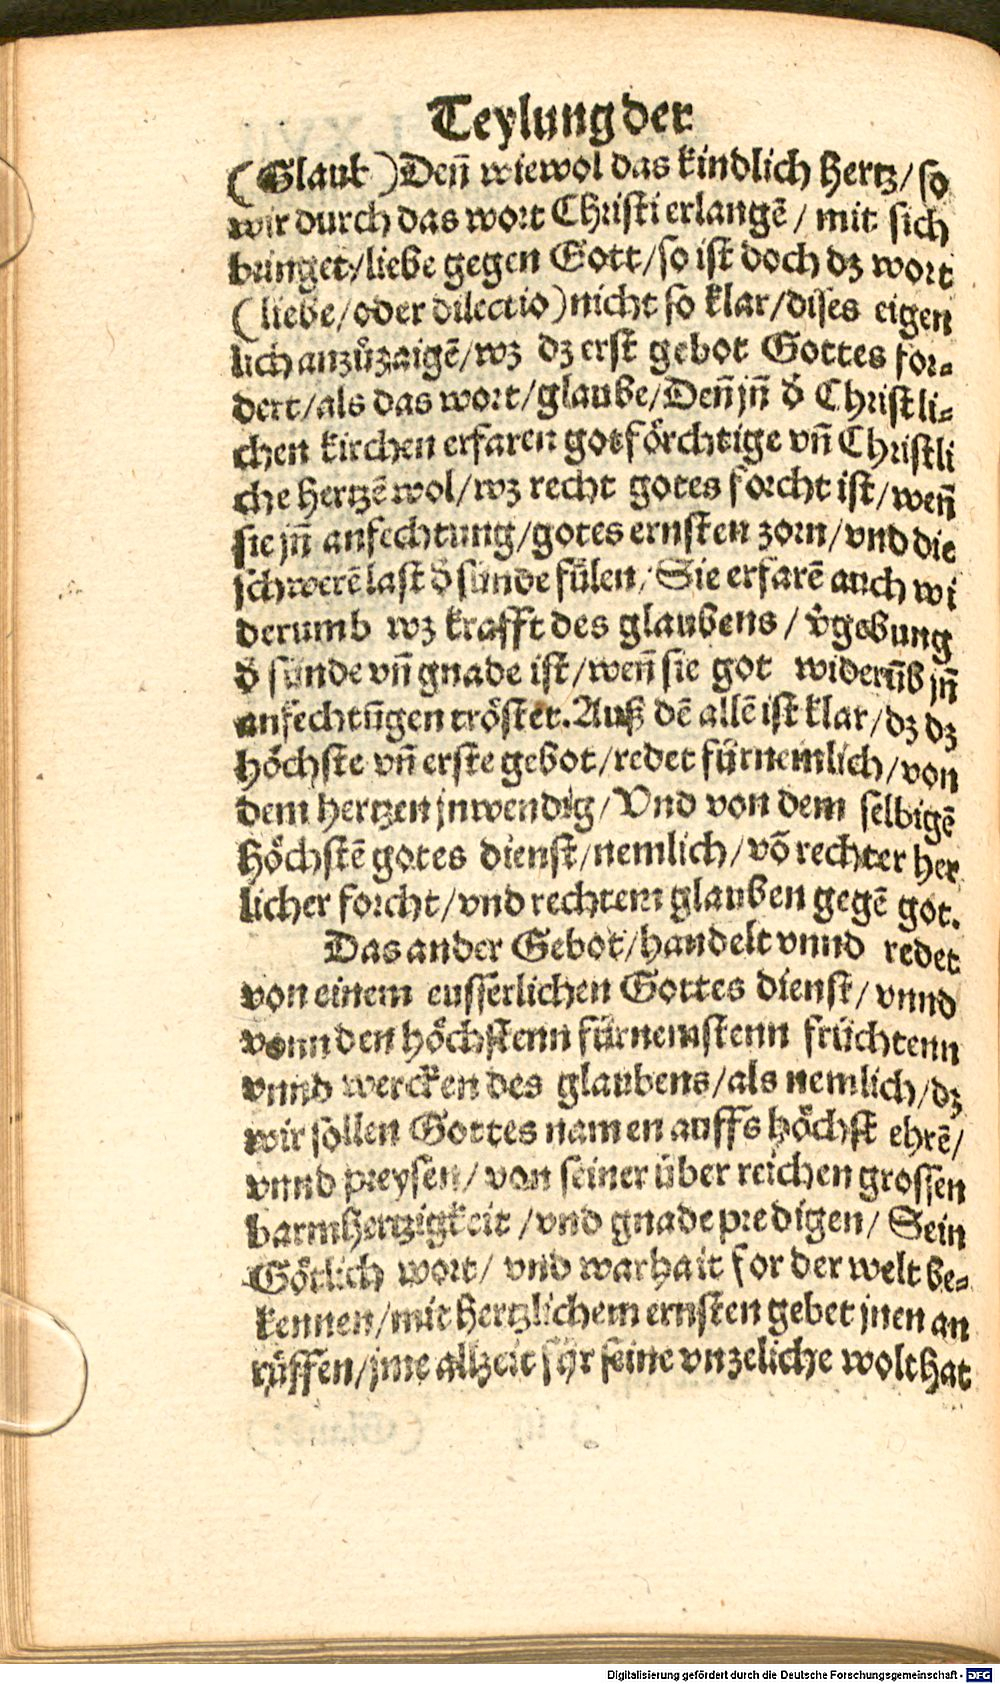 Teylung der
(Glaub) Deñ wiewol das kindlich hertz/so
wir durch das wort Christi erlangẽ/ mit sich
bringet/liebe gegen Gott/so ist doch dz wort
(liebe/oder dilectio) nicht so klar/dises eigen
lich anzůzaigẽ/wz dz erst gebot Gottes for-
dert/als das wort/glaube/Deñ jñ d̄ Christli-
chen kirchen erfaren gotförchtige vñ Christli
che hertzẽ wol/wz recht gotes forcht ist/weñ
sie jñ anfechtung/gotes ernsten zorn/vnd die
schwerẽ last d̄ sünde fülen/Sie erfarẽ auch wi
derumb wz krafft des glaubens/v̾gebung
d̄ sünde vñ gnade ist/weñ sie got widerũb jñ
anfechtũgen tröstet. Auß dẽ allẽ ist klar/dz dz
höchste vñ erste gebot/redet fürnemlich/von
dem hertzen jnwendig/Vnd von dem selbigẽ
höchstẽ gotes dienst/nemlich/võ rechter her
licher forcht/vnd rechtem glauben gegẽ got.
Das ander Gebot/handelt vnnd redet
von einem eusserlichen Gottes dienst/vnnd
vonn den höchstenn fürnemstenn früchtenn
vnnd wercken des glaubens/als nemlich/dz
wir söllen Gottes namen auffs höchst ehrẽ/
vnnd preysen/von seiner über reichen grossen
barmhertzigkeit/vnd gnade predigen/Sein
Götlich wort/vnd warhait for der welt be-
kennen/mit hertzlichem ernsten gebet jnen an
rüffen/jme allzeit für seine vnzeliche wolthat
Digitalisierung gefördert durch die Deutsche Forschungsgemeinschaft - DFG